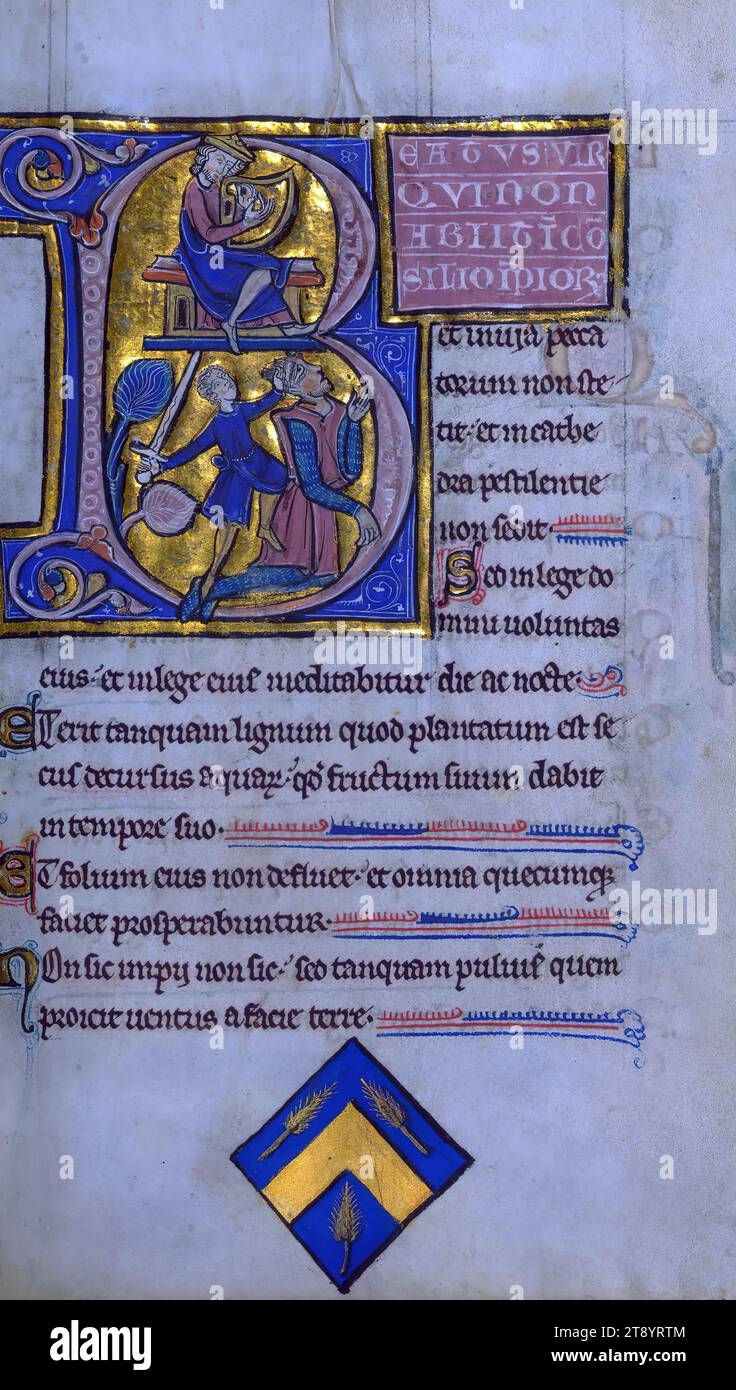 B
EATUS VIR
QVI NON
ABIIT I̅ CO̅
SILIO I̅PIOR
et in uia pecca
torum non ste
tit· et in cathe
dra pestilentie
non sedit·
Sed in lege do
mini uoluntas
eius· et in lege eius meditabitur die ac nocte·
ET erit tanquam lignum quod plantatum est se
cus decursus aquaꝝ· qd̕ fructum suum dabit
in tempore suo·
ET folium eius non defluet· et omnia quecumqꝫ
faciet prosperabuntur·
Non sic impij non sic· sed tanquam puluis quem
proicit uentus a facie terre·
alamy
Image ID: 2T8YRTM
www.alamy.com